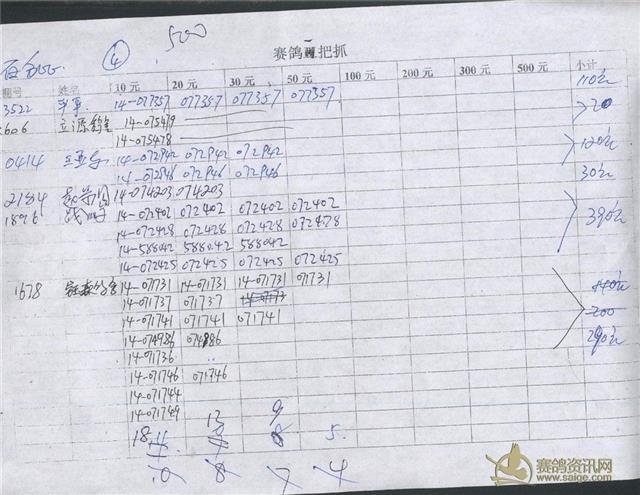 ④ 500
赛鸽 把抓
棚号 姓名 10元 20元 30元 50元 100元 200元 300元 500元 小计
3522 14-077357 077357 077357 077357 110元
606 立源鸽 14-075479 20
14-075478
0414 14-072942 072942 072942 120元
14-072946 072946 072946
2184 14-074203 074203 30元
1896 14-072402 072402 072402 072402 390元
14-072428 072428 072428 072428
14-588042 588042 588042
14-072425 072425 072425 072425
1678 14-071731 14-071731 14-071731 071731
14-071737 071737
14-071741 071741 071741 200
14-074986 074986 290元
14-071736
14-071746 071746
14-071744
14-071749
18 13 9 5
8 7 4
赛鸽资讯网
www.saige.com